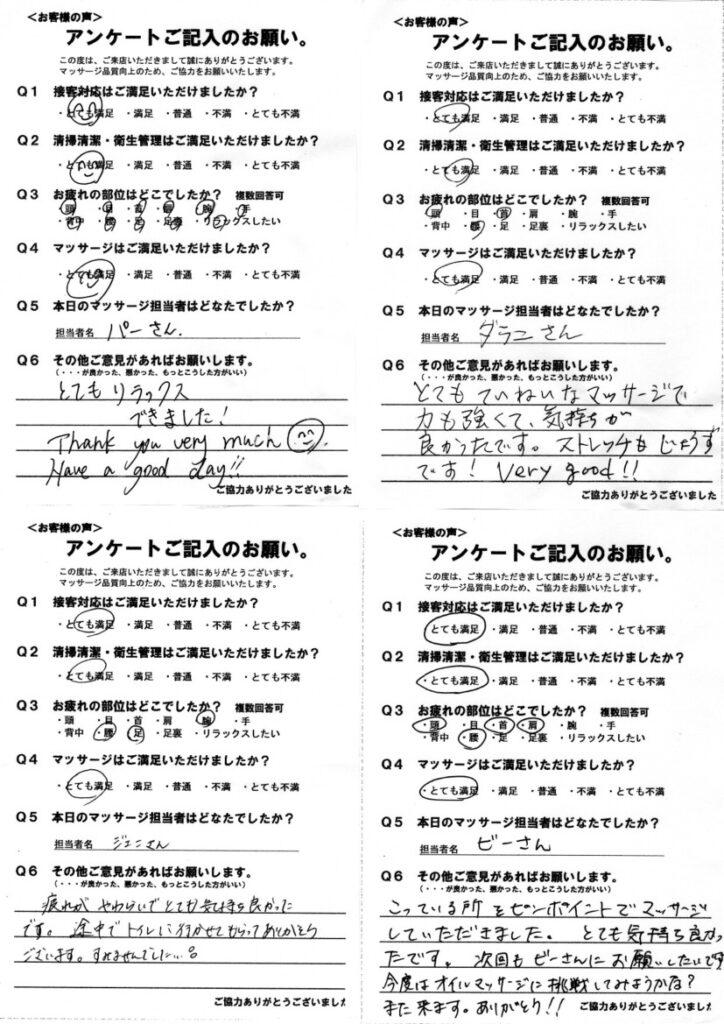 <お客様の声>
アンケートご記入のお願い。
この度は、ご来店いただきまして誠にありがとうございます。
マッサージ品質向上のため、ご協力をお願いいたします。
Q1 接客対応はご満足いただけましたか?
・とても満足 ・満足 ・普通 ・不満 ・とても不満
Q2 清掃清潔・衛生管理はご満足いただけましたか?
・とても満足 ・満足 ・普通 ・不満 ・とても不満
Q3 お疲れの部位はどこでしたか? 複数回答可
・頭 ・目 ・首 ・肩 ・腕 ・手
・背中 ・腰 ・足 ・足裏 ・リラックスしたい
Q4 マッサージはご満足いただけましたか?
・とても満足 ・満足 ・普通 ・不満 ・とても不満
Q5 本日のマッサージ担当者はどなたでしたか?
担当者名 パーさん.
Q6 その他ご意見があればお願いします。
(・・・が良かった、悪かった、もっとこうした方がいい)
とてもリラックス
できました!
Thank you very much
Have a good day!!
ご協力ありがとうございました
<お客様の声>
アンケートご記入のお願い。
この度は、ご来店いただきまして誠にありがとうございます。
マッサージ品質向上のため、ご協力をお願いいたします。
Q1 接客対応はご満足いただけましたか?
・とても満足 ・満足 ・普通 ・不満 ・とても不満
Q2 清掃清潔・衛生管理はご満足いただけましたか?
・とても満足 ・満足 ・普通 ・不満 ・とても不満
Q3 お疲れの部位はどこでしたか? 複数回答可
・頭 ・目 ・首 ・肩 ・腕 ・手
・背中 ・腰 ・足 ・足裏 ・リラックスしたい
Q4 マッサージはご満足いただけましたか?
・とても満足 ・満足 ・普通 ・不満 ・とても不満
Q5 本日のマッサージ担当者はどなたでしたか?
担当者名 ダラニさん
Q6 その他ご意見があればお願いします。
(・・・が良かった、悪かった、もっとこうした方がいい)
とてもていねいなマッサージで
力も強くて、気持ちが
良かったです。ストレッチもじょうず
です! Very good!!
ご協力ありがとうございました
<お客様の声>
アンケートご記入のお願い。
この度は、ご来店いただきまして誠にありがとうございます。
マッサージ品質向上のため、ご協力をお願いいたします。
Q1 接客対応はご満足いただけましたか?
・とても満足 ・満足 ・普通 ・不満 ・とても不満
Q2 清掃清潔・衛生管理はご満足いただけましたか?
・とても満足 ・満足 ・普通 ・不満 ・とても不満
Q3 お疲れの部位はどこでしたか? 複数回答可
・頭 ・目 ・首 ・肩 ・腕 ・手
・背中 ・腰 ・足 ・足裏 ・リラックスしたい
Q4 マッサージはご満足いただけましたか?
・とても満足 ・満足 ・普通 ・不満 ・とても不満
Q5 本日のマッサージ担当者はどなたでしたか?
担当者名 ジェニさん
Q6 その他ご意見があればお願いします。
(・・・が良かった、悪かった、もっとこうした方がいい)
疲れが やわらいで とても気持ち良かった
です。途中でトイレに行かせてもらってありがとう
ございます。すみませんでした…。
ご協力ありがとうございました
<お客様の声>
アンケートご記入のお願い。
この度は、ご来店いただきまして誠にありがとうございます。
マッサージ品質向上のため、ご協力をお願いいたします。
Q1 接客対応はご満足いただけましたか?
とても満足 ・満足 ・普通 ・不満 ・とても不満
Q2 清掃清潔・衛生管理はご満足いただけましたか?
・とても満足 ・満足 ・普通 ・不満 ・とても不満
Q3 お疲れの部位はどこでしたか? 複数回答可
・頭 ・目 ・首 ・肩 ・腕 ・手
・背中 ・腰 ・足 ・足裏 ・リラックスしたい
Q4 マッサージはご満足いただけましたか?
・とても満足 ・満足 ・普通 ・不満 ・とても不満
Q5 本日のマッサージ担当者はどなたでしたか?
担当者名 ビーさん
Q6 その他ご意見があればお願いします。
(・・・が良かった、悪かった、もっとこうした方がいい)
こっている所をピンポイントでマッサージ
していただきました。とても気持ち良かっ
たです。次回も ビーさんに お願いしたいです
今度はオイルマッサージに挑戦してみようかな?
また来ます。ありがとう!!
ご協力ありがとうございました